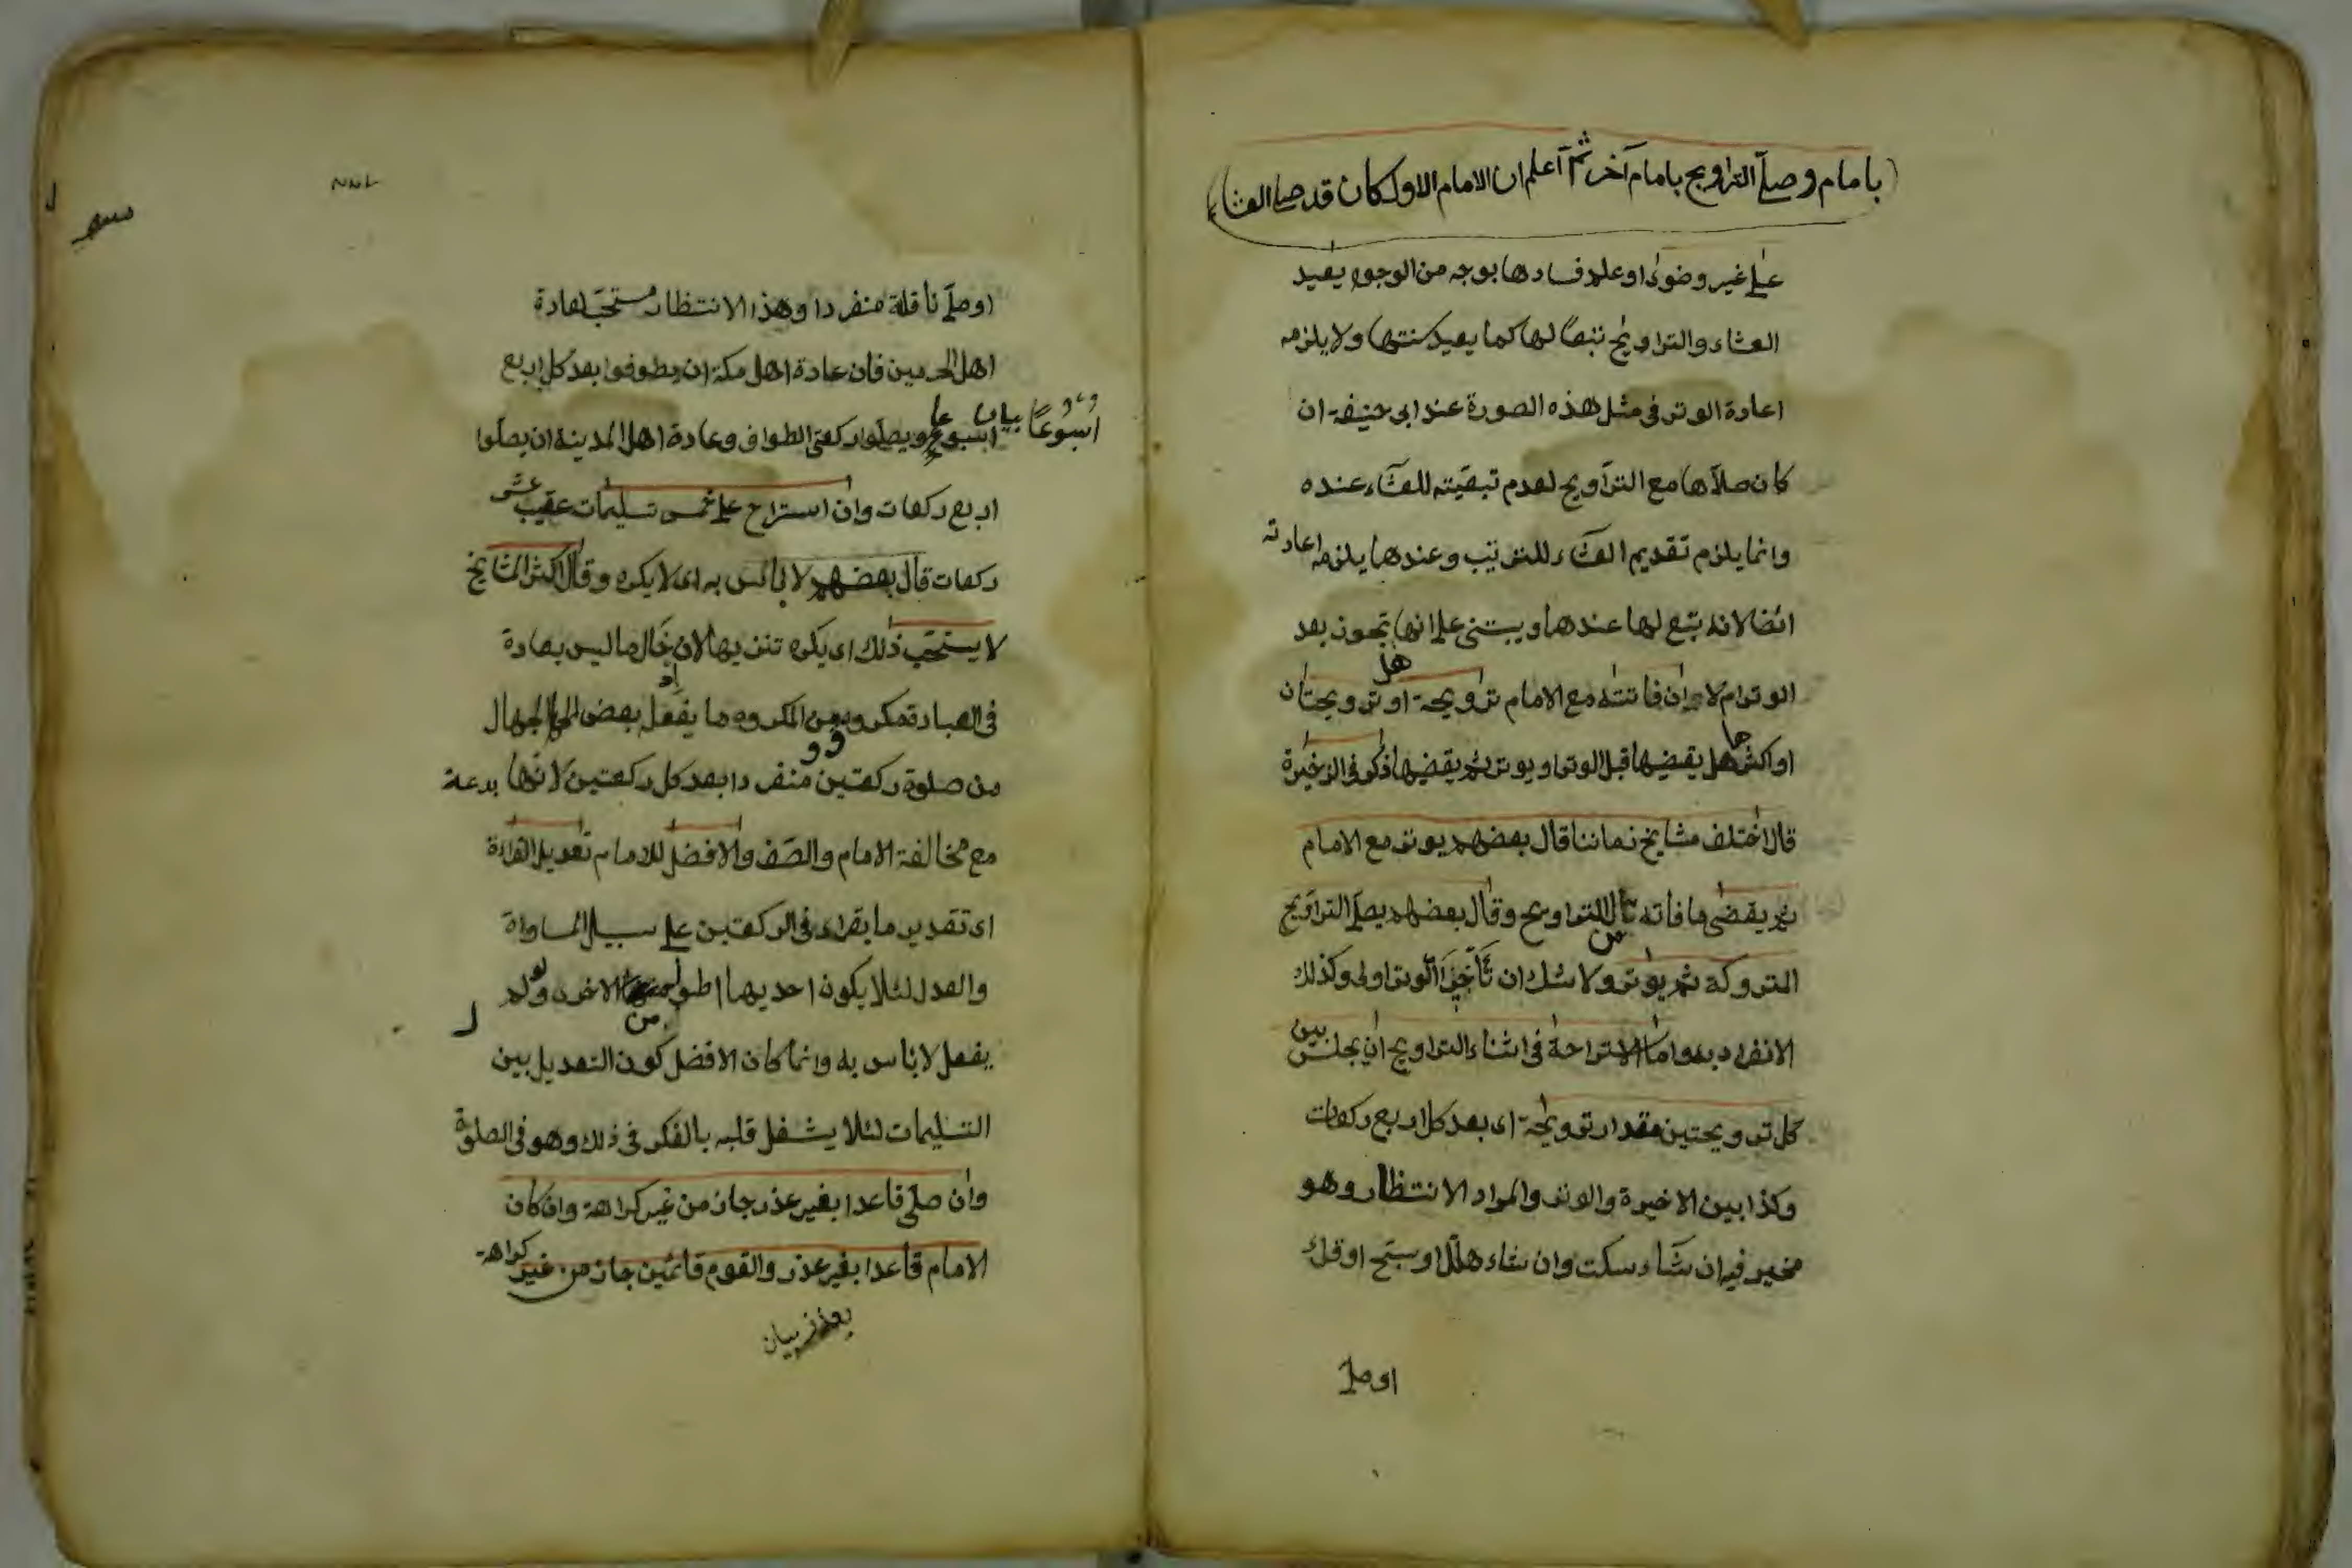 بامام وصلّى التراويح بامام آخر ثم اعلم ان الامام الاول كان قد صلى العشاء
على غير وضوء او علم فسادها بوجه من الوجوه يعيد
العشاء والتراويح تبعًا لها كما يعيد سنتها ولا يلزمه
اعادة الوتر في مثل هذه الصورة عند ابى حنيفة ان
كان صلاها مع التراويح لعدم تبعيته للعشاء عنده
وانما يلزم تقديم العشاء للترتيب وعندهما يلزمه اعادته
ايضا لانه تبع لها عندهما ويبتنى على انها تجوز بعد
الوتر ام لا وان فاتته مع الامام ترويحة او ترويحتان
او اكثر هل يقضيها قبل الوتر او يوتر ثم يقضيها ذكر فى الذخيرة
قال اختلف مشايخ زماننا قال بعضهم يوتر مع الامام
ثم يقضى ما فاته من التراويح وقال بعضهم يصلى التراويح
المتروكة ثم يوتر ولا شك ان تأخير الوتر اولى وكذلك
الانفراد به واما الاستراحة فى اثناء التراويح ان يجلس بين
كل ترويحتين مقدار ترويحة اى بعد كل اربع ركعات
وكذا بين الاخيرة والوتر والمراد الانتظار وهو
مخير فيه ان شاء سكت وان شاء هلل او سبّح او قرأ
او صلى
او صلّى نافلة منفردا وهذا الانتظار مستحبّ لعادة
اهل الحرمين فان عادة اهل مكة ان يطوفوا بعد كل اربع
اسبوعًا ويصلّوا ركعتى الطواف وعادة اهل المدينة ان يصلّوا
اسبوعًا بيان
اربع ركعات وان استراح على خمس تسليمات عقيب عشر
ركعات قال بعضهم لا بأس به اى لا يكره وقال اكثر المشايخ
لا يستحب ذلك اى يكره تنزيها لان
ما ليس بعادة
فى العبادة مكروه ومن المكروه ما يفعل بعض الجهال
من صلوة ركعتين منفردا بعد كل ركعتين لانها بدعة
مع مخالفة الامام والصّف والافضل للامام تعديل القراءة
اى تقدير ما يقراء فى الركعتين على سبيل المساواة
والعدل لئلا يكون احديهما اطول من الاخرى ولو لم
يفعل لا بأس به وانما كان الافضل كون التعديل بين
التسليمات لئلا يشغل قلبه بالفكر فى ذلك وهو فى الصلوة
وان صلّى قاعدا بغير عذر جاز من غير كراهة وان كان
الامام قاعدا بغير عذر والقوم قائمين جاز من غير كراهة
بعذر بيان